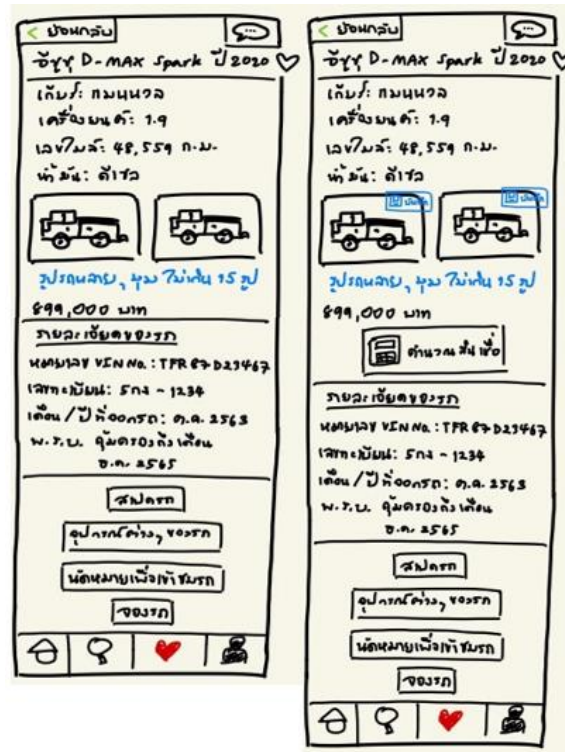 ย้อนกลับ
อีซูซุ D-MAX Spark ปี 2020
เกียร์: แมนนวล
เครื่องยนต์: 1.9
เลขไมล์: 48,559 ก.ม.
น้ำมัน: ดีเซล
รูปรถหลายๆ มุม ไม่เกิน 15 รูป
899,000 บาท
รายละเอียดของรถ
หมายเลข VIN No.: TFR87D23467
เลขทะเบียน: 5กง - 1234
เดือน / ปี ที่ออกรถ: ต.ค. 2563
พ.ร.บ. คุ้มครองถึงเดือน
ธ.ค. 2565
สเปครถ
อุปกรณ์ต่างๆ ของรถ
นัดหมายเพื่อเข้าชมรถ
จองรถ
ย้อนกลับ
อีซูซุ D-MAX Spark ปี 2020
เกียร์: แมนนวล
เครื่องยนต์: 1.9
เลขไมล์: 48,559 ก.ม.
น้ำมัน: ดีเซล
บันทึก
บันทึก
รูปรถหลายๆ มุม ไม่เกิน 15 รูป
899,000 บาท
คำนวณสินเชื่อ
รายละเอียดของรถ
หมายเลข VIN No.: TFR87D23467
เลขทะเบียน: 5กง - 1234
เดือน / ปี ที่ออกรถ: ต.ค. 2563
พ.ร.บ. คุ้มครองถึงเดือน
ธ.ค. 2565
สเปครถ
อุปกรณ์ต่างๆ ของรถ
นัดหมายเพื่อเข้าชมรถ
จองรถ